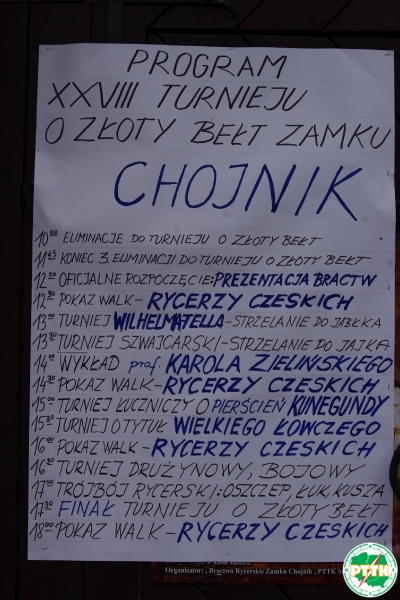 PROGRAM
XXVIII TURNIEJU
O ZŁOTY BEŁT ZAMKU
CHOJNIK
10⁰⁰ ELIMINACJE DO TURNIEJU O ZŁOTY BEŁT
11⁴⁵ KONIEC 3. ELIMINACJI DO TURNIEJU O ZŁOTY BEŁT
12⁰⁰ OFICJALNE ROZPOCZĘCIE: PREZENTACJA BRACTW
12³⁰ POKAZ WALK - RYCERZY CZESKICH
13⁰⁰ TURNIEJ WILHELMA TELLA - STRZELANIE DO JABŁKA
13³⁰ TURNIEJ SZWAJCARSKI - STRZELANIE DO JAJKA
14⁰⁰ WYKŁAD prof. KAROLA ZIELIŃSKIEGO
14³⁰ POKAZ WALK - RYCERZY CZESKICH
15⁰⁰ TURNIEJ ŁUCZNICZY O PIERŚCIEŃ KUNEGUNDY
15³⁰ TURNIEJ O TYTUŁ WIELKIEGO ŁOWCZEGO
16⁰⁰ POKAZ WALK - RYCERZY CZESKICH
16³⁰ TURNIEJ DRUŻYNOWY, BOJOWY
17⁰⁰ TRÓJBÓJ RYCERSKI: OSZCZEP, ŁUK, KUSZA
17³⁰ FINAŁ TURNIEJU O ZŁOTY BEŁT
18⁰⁰ POKAZ WALK - RYCERZY CZESKICH
Organizator: , Bractwo Rycerskie Zamku Chojnik , PTTK
PTTK